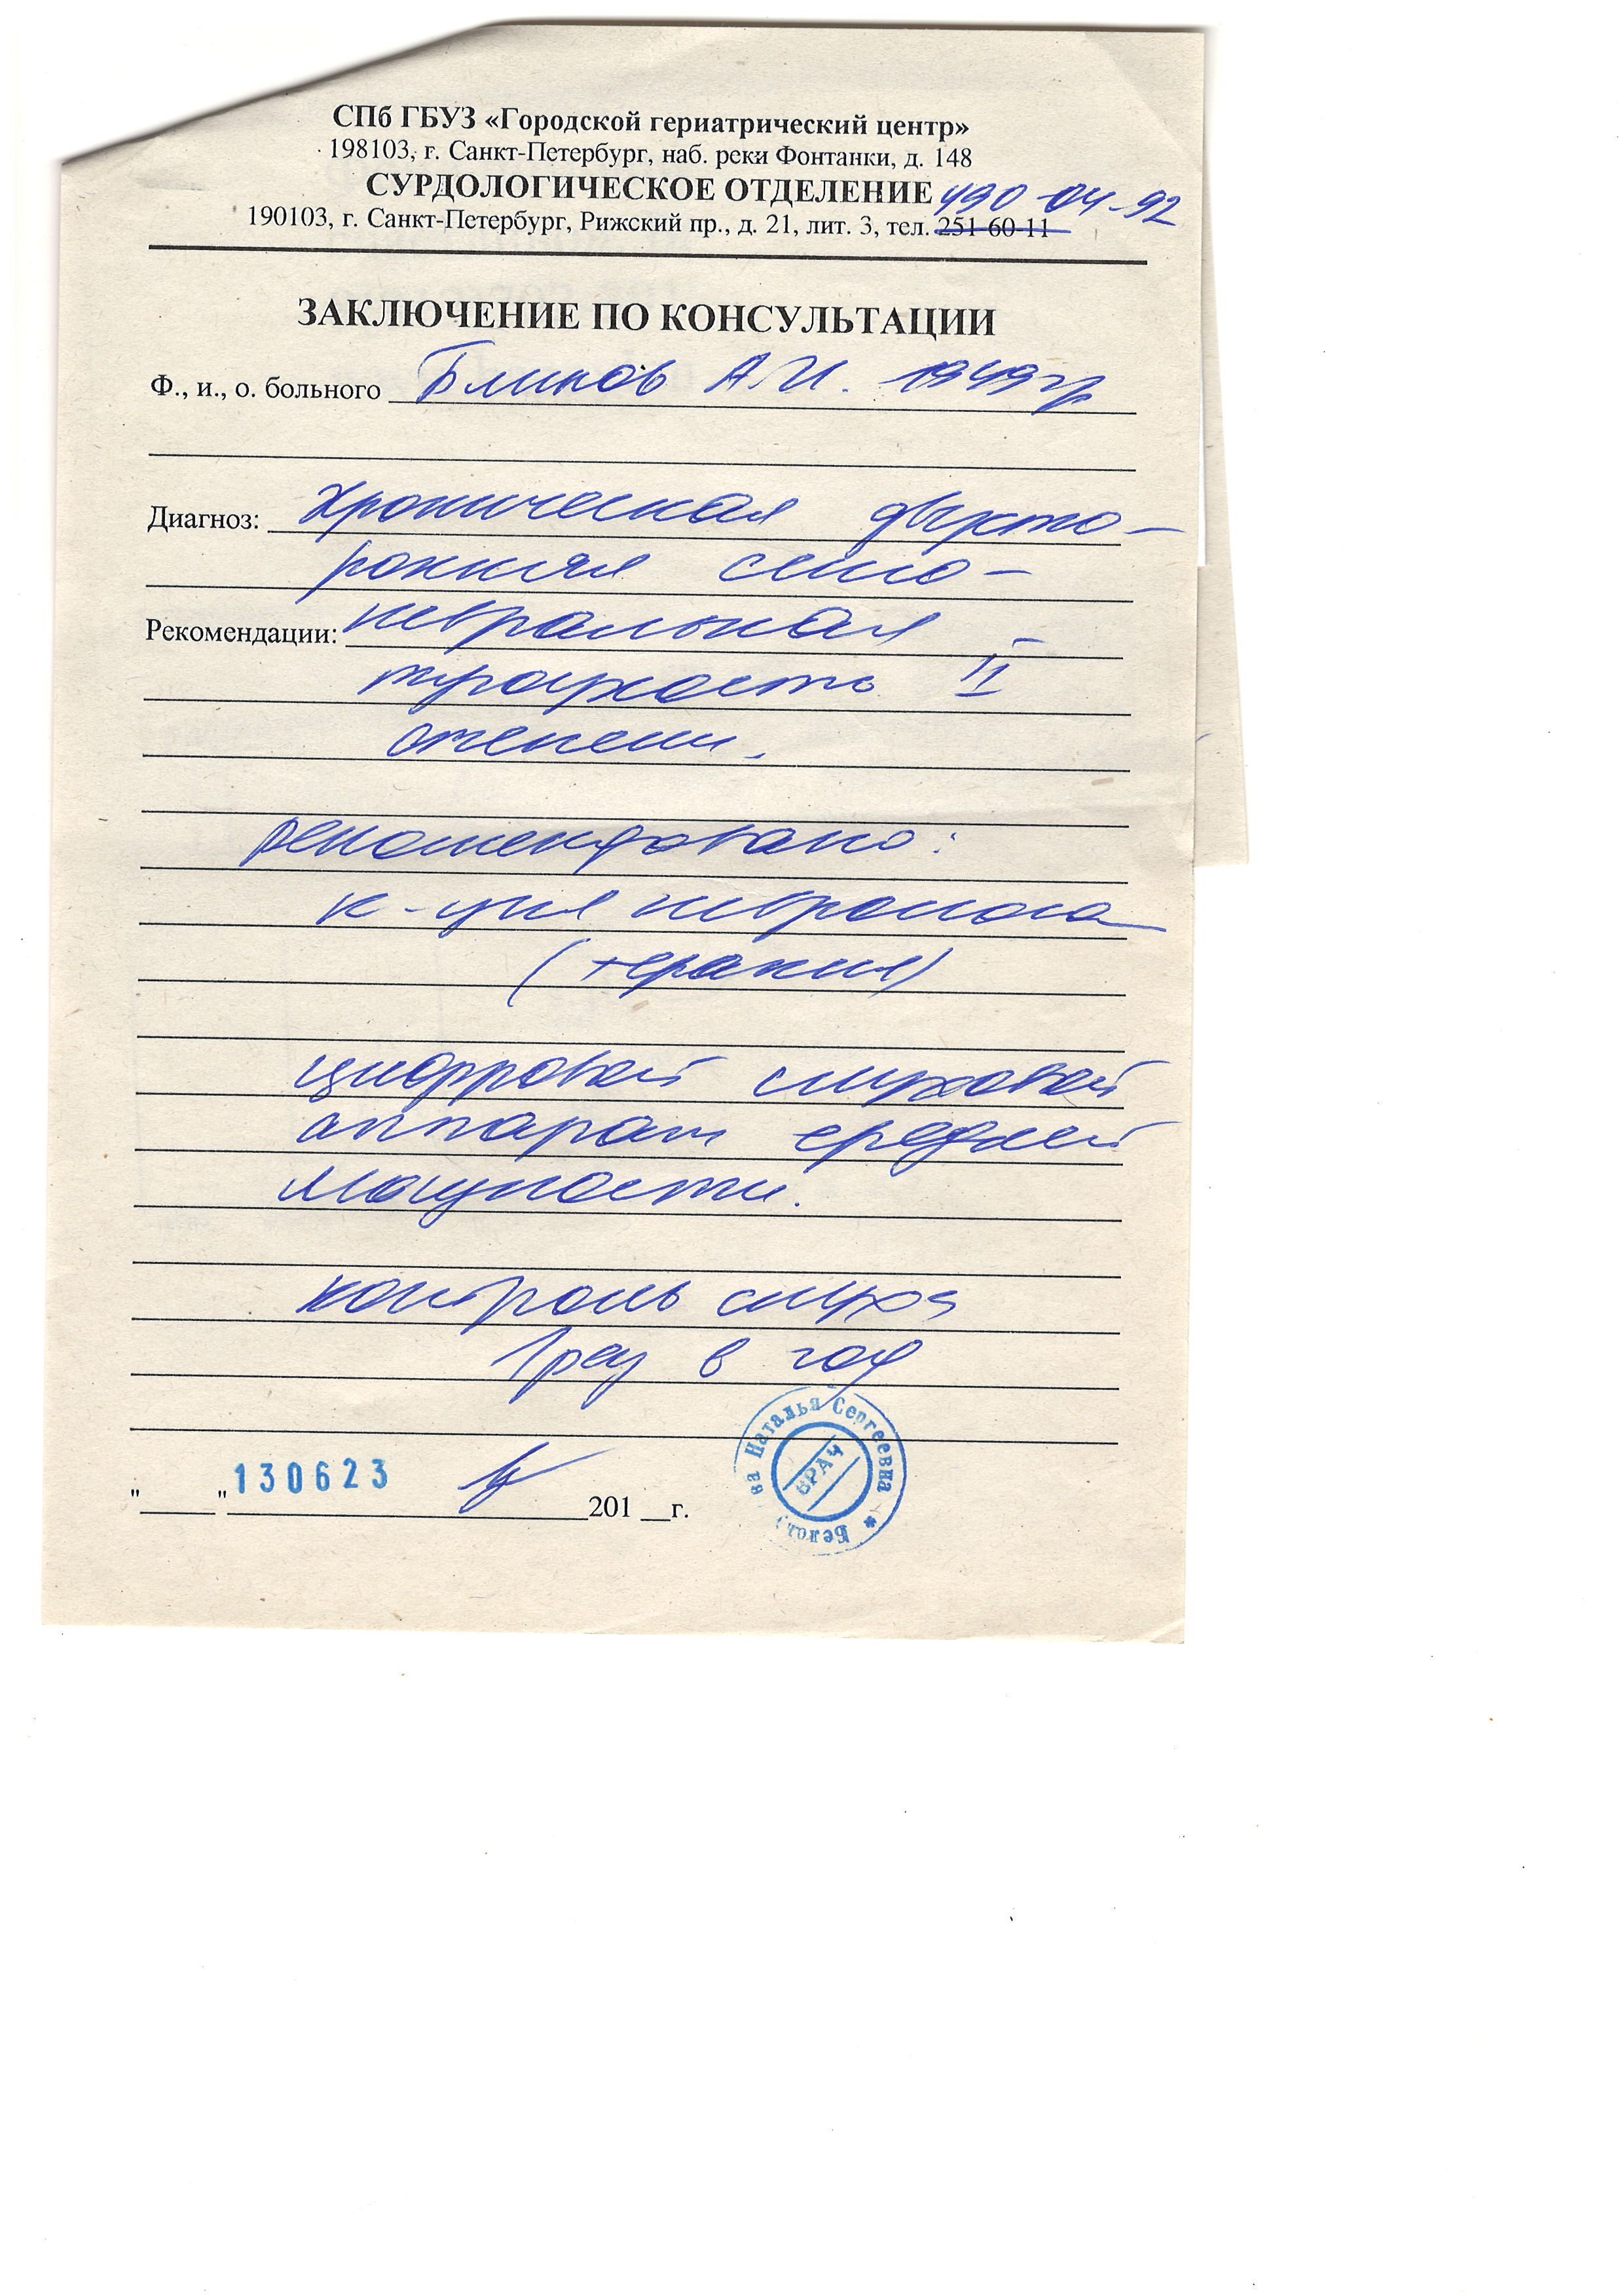 СПб ГБУЗ «Городской гериатрический центр»
198103, г. Санкт-Петербург, наб. реки Фонтанки, д. 148
СУРДОЛОГИЧЕСКОЕ ОТДЕЛЕНИЕ 490-04-92
190103, г. Санкт-Петербург, Рижский пр., д. 21, лит. 3, тел. 251-60-11
ЗАКЛЮЧЕНИЕ ПО КОНСУЛЬТАЦИИ
Ф., и., о. больного Блинов А.И. 1949гр
Диагноз: Хроническая двухсто-
ронняя сенсо-
Рекомендации: невральная
тугоухость II
степени.
рекомендовано:
к-ция невролога
(терапия)
цифровой слуховой
аппарат средней
мощности.
контроль слуха
1 раз в год
"____" 130623 201 __г.
ва Наталья Сергеевна * Белоу
ВРАЧ